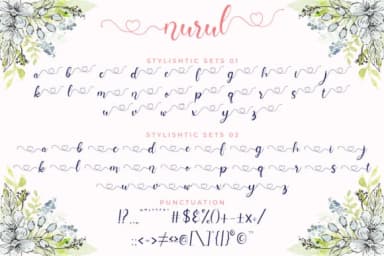 nurul
STYLISHTIC SETS 01
a b c d e f g h i j
k l m n o p q r s t
u v w x y z
STYLISHTIC SETS 02
a b c d e f g h i j
k l m n o p q r s t
u v w x y z
PUNCTUATION